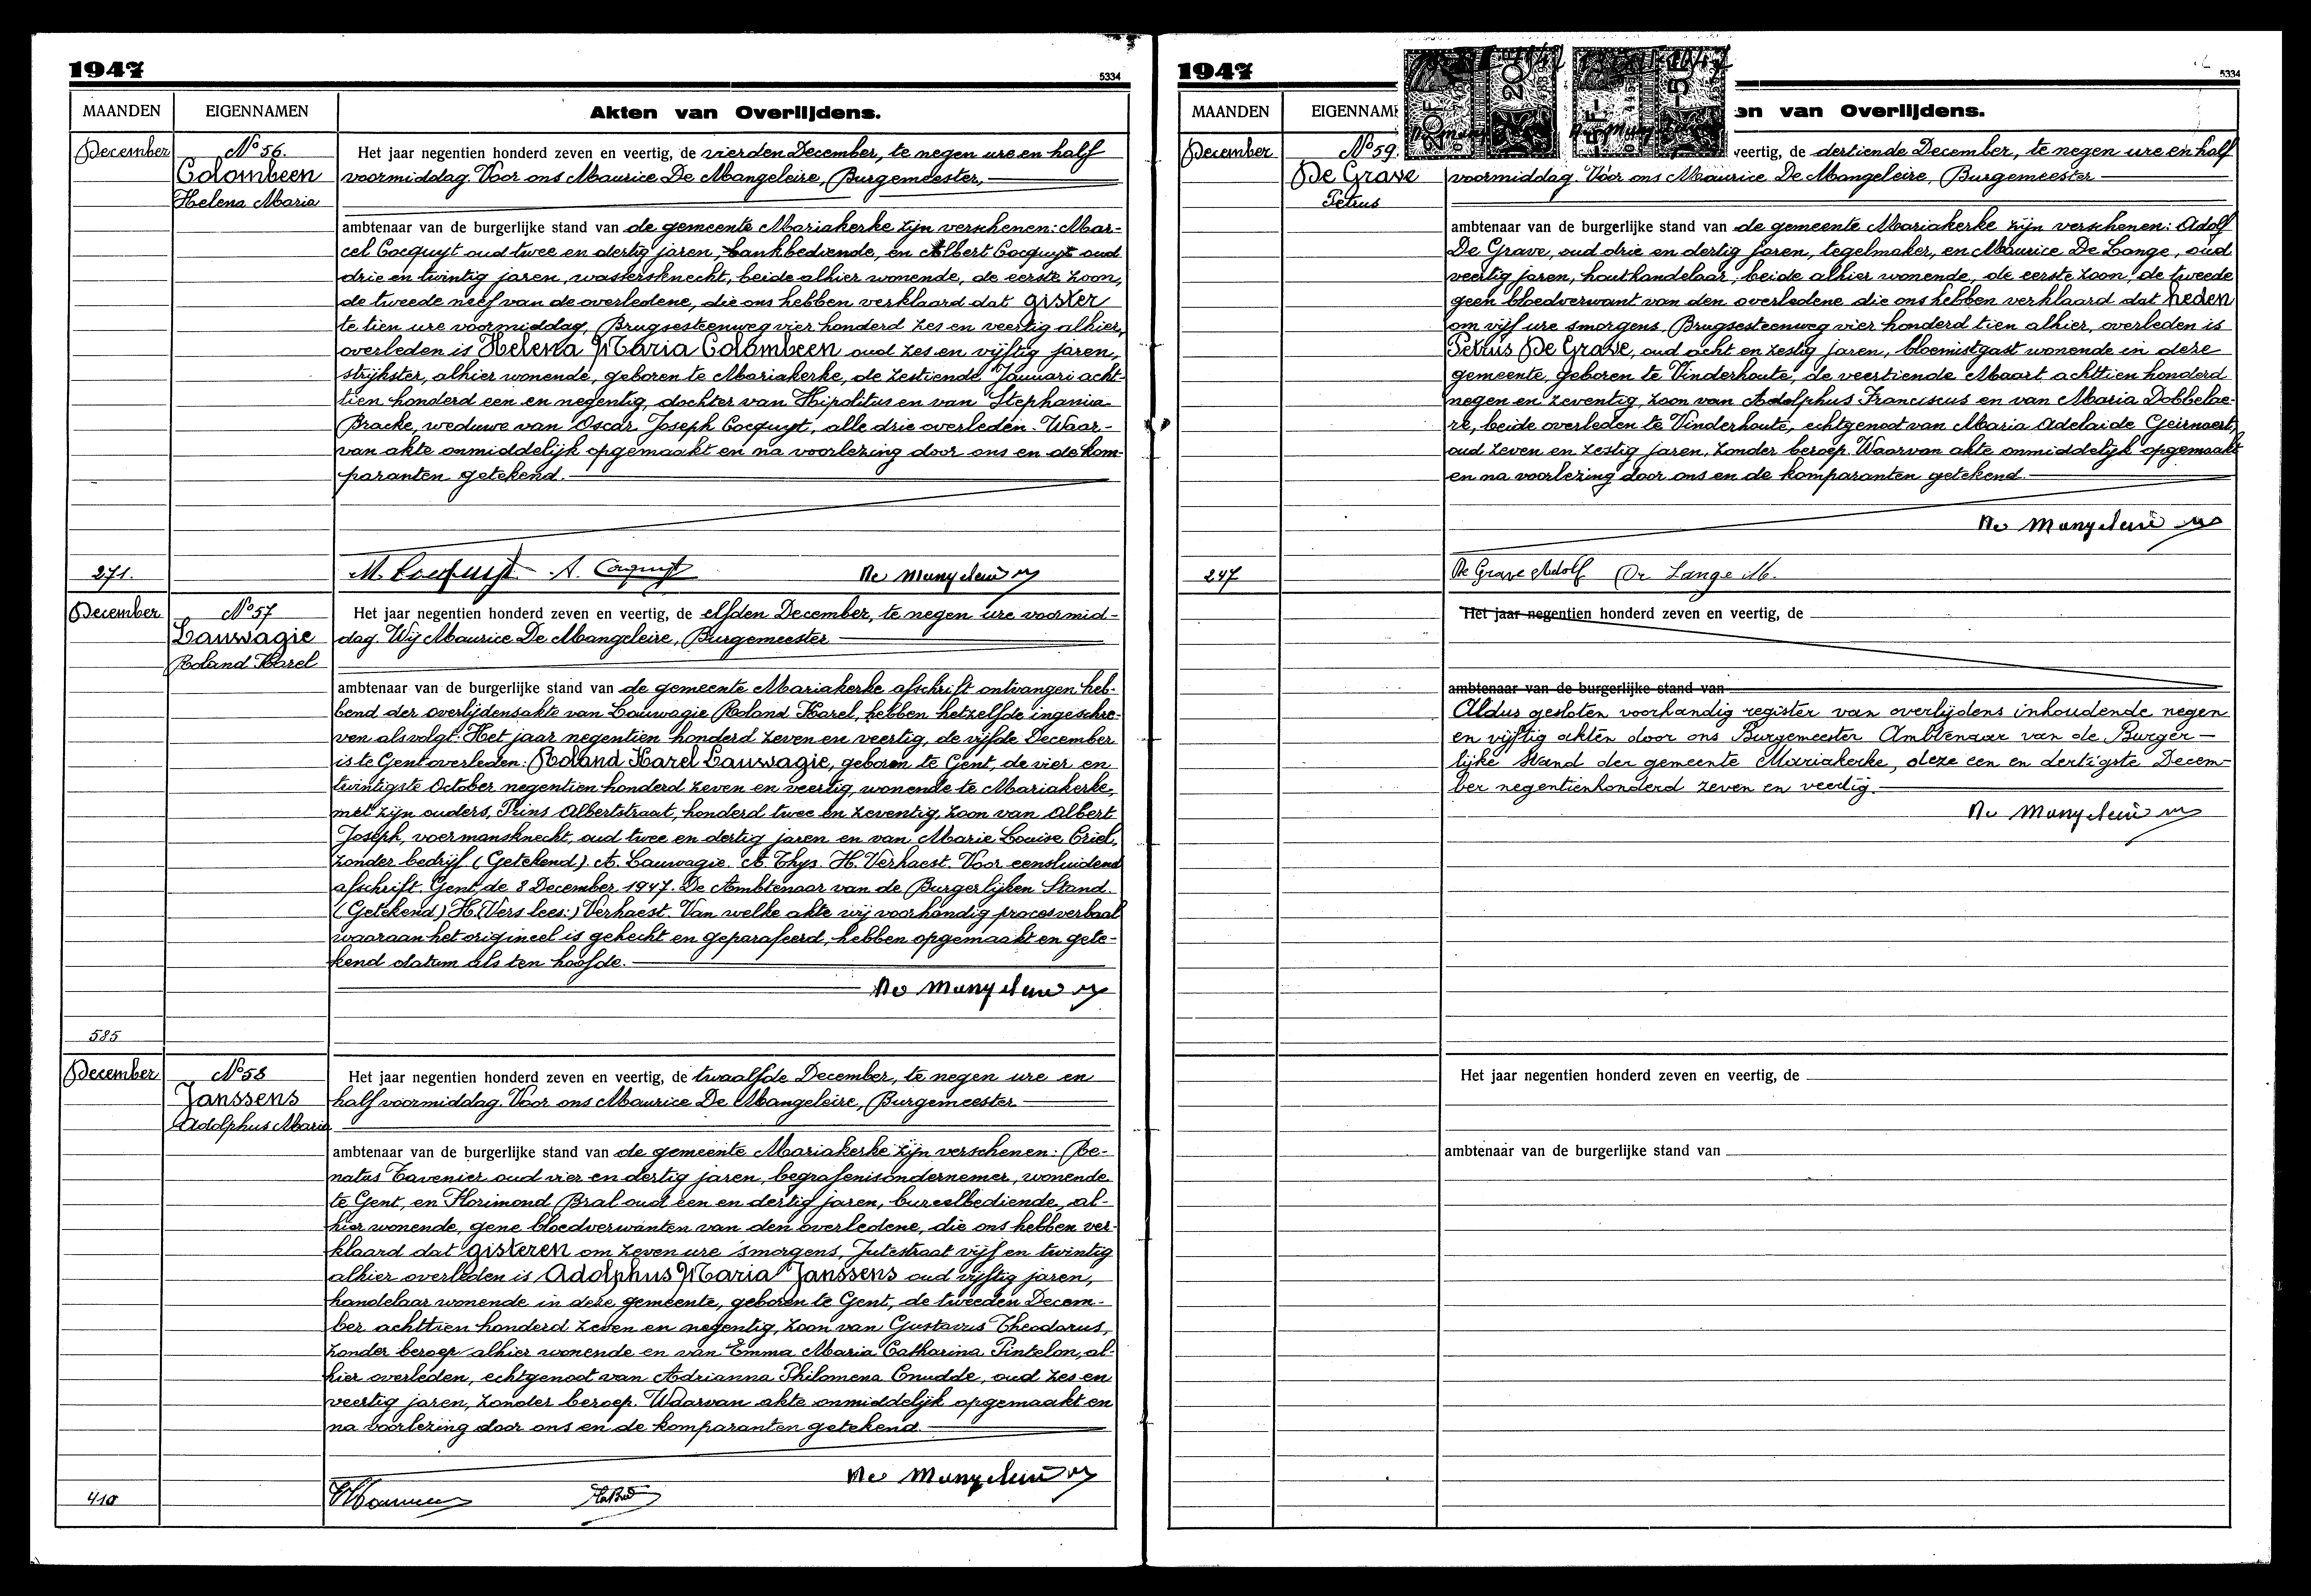 1947
5334
MAANDEN
EIGENNAMEN
Akten van Overlijdens.
December
No 56.
Colombeen
Helena Maria
Het jaar negentien honderd zeven en veertig, de vierden December, te negen ure en half
voormiddag. Voor ons Maurice De Mangeleire, Burgemeester,
ambtenaar van de burgerlijke stand van de gemeente Mariakerke zijn verschenen: Mar-
cel Cocquyt oud twee en dertig jaren, bankbediende, en Albert Cocquyt oud
drie en twintig jaren, wassersknecht, beide alhier wonende, de eerste zoon,
de tweede neef van de overledene, die ons hebben verklaard dat gister
te tien ure voormiddag, Brugsesteenweg vier honderd zes en veertig alhier,
overleden is Helena Maria Colombeen oud zes en vijftig jaren,
strijkster, alhier wonende, geboren te Mariakerke, de zestiende Januari acht-
tien honderd een en negentig, dochter van Hipolitus en van Stephania
Bracke, weduwe van Oscar Joseph Cocquyt, alle drie overleden. Waar-
van akte onmiddelijk opgemaakt en na voorlezing door ons en de kom-
paranten getekend.
M. Cocquyt A. Cocquyt De Mangeleire
271.
December
No 57
Lauwagie
Roland Karel
Het jaar negentien honderd zeven en veertig, de elfden December, te negen ure voormid-
dag. Wij Maurice De Mangeleire, Burgemeester
ambtenaar van de burgerlijke stand van de gemeente Mariakerke afschrift ontvangen heb-
bend der overlijdensakte van Lauwagie Roland Karel, hebben hetzelfde ingeschre-
ven als volgt: Het jaar negentien honderd zeven en veertig, de vijfde December
is te Gent overleden: Roland Karel Lauwagie, geboren te Gent, de vier en
twintigste October negentien honderd zeven en veertig, wonende te Mariakerke,
met zijn ouders, Prins Albertstraat, honderd twee en zeventig, zoon van Albert
Joseph, voermansknecht, oud twee en dertig jaren en van Marie Louise Criel,
zonder bedrijf (Getekend). A. Lauwagie. A. Thys. H. Verhaest. Voor eensluidend
afschrift. Gent, de 8 December 1947. De Ambtenaar van de Burgerlijken Stand.
(Getekend) H. (Vers lees:) Verhaest. Van welke akte wij voorhandig procesverbaal
waaraan het origineel is gehecht en geparafeerd, hebben opgemaakt en gete-
kend datum als ten hoofde.
De Mangeleire
585
December
No 58
Janssens
Adolphus Maria
Het jaar negentien honderd zeven en veertig, de twaalfde December, te negen ure en
half voormiddag. Voor ons Maurice De Mangeleire, Burgemeester
ambtenaar van de burgerlijke stand van de gemeente Mariakerke zijn verschenen: Re-
natus Tavenier oud vier en dertig jaren, begrafenisondernemer, wonende
te Gent, en Florimond Bral oud een en dertig jaren, bureelbediende, al-
hier wonende, gene bloedverwanten van den overledene, die ons hebben ver-
klaard dat gisteren om zeven ure 'smorgens, Jutestraat vijf en twintig
alhier overleden is Adolphus Maria Janssens oud vijftig jaren,
handelaar wonende in deze gemeente, geboren te Gent, de tweeden Decem-
ber achttien honderd zeven en negentig, zoon van Gustavus Theodorus,
zonder beroep alhier wonende en van Emma Maria Catharina Pintelon, al-
hier overleden, echtgenoot van Adrianna Philomena Cnudde, oud zes en
veertig jaren, zonder beroep. Waarvan akte onmiddelijk opgemaakt en
na voorlezing door ons en de komparanten getekend.
De Mangeleire
410
1947
5334
MAANDEN
EIGENNAM
en van Overlijdens.
December
No 59.
De Grave
Petrus
veertig, de dertiende December, te negen ure en half
voormiddag. Voor ons Maurice De Mangeleire, Burgemeester
ambtenaar van de burgerlijke stand van de gemeente Mariakerke zijn verschenen: Adolf
De Grave, oud drie en dertig jaren, tegelmaker, en Maurice De Lange, oud
veertig jaren, houthandelaar, beide alhier wonende, de eerste zoon, de tweede
geen bloedverwant van den overledene die ons hebben verklaard dat heden
om vijf ure smorgens, Brugsesteenweg vier honderd tien alhier, overleden is
Petrus De Grave, oud acht en zestig jaren, bloemistgast wonende in deze
gemeente, geboren te Vinderhoute, de veertiende Maart achttien honderd
negen en zeventig, zoon van Adolphus Franciscus en van Maria Dobbelae-
re, beide overleden te Vinderhoute, echtgenoot van Maria Adelaide Geirnaert,
oud zeven en zestig jaren, zonder beroep. Waarvan akte onmiddelijk opgemaakt
en na voorlezing door ons en de komparanten getekend.
De Mangeleire
De Grave Adolf De Lange M.
247
Het jaar negentien honderd zeven en veertig, de
ambtenaar van de burgerlijke stand van
Aldus gesloten voorhandig register van overlijdens inhoudende negen
en vijftig akten door ons Burgemeester Ambtenaar van de Burger-
lijke Stand der gemeente Mariakerke, deze een en dertigste Decem-
ber negentienhonderd zeven en veertig.
De Mangeleire
Het jaar negentien honderd zeven en veertig, de
ambtenaar van de burgerlijke stand van